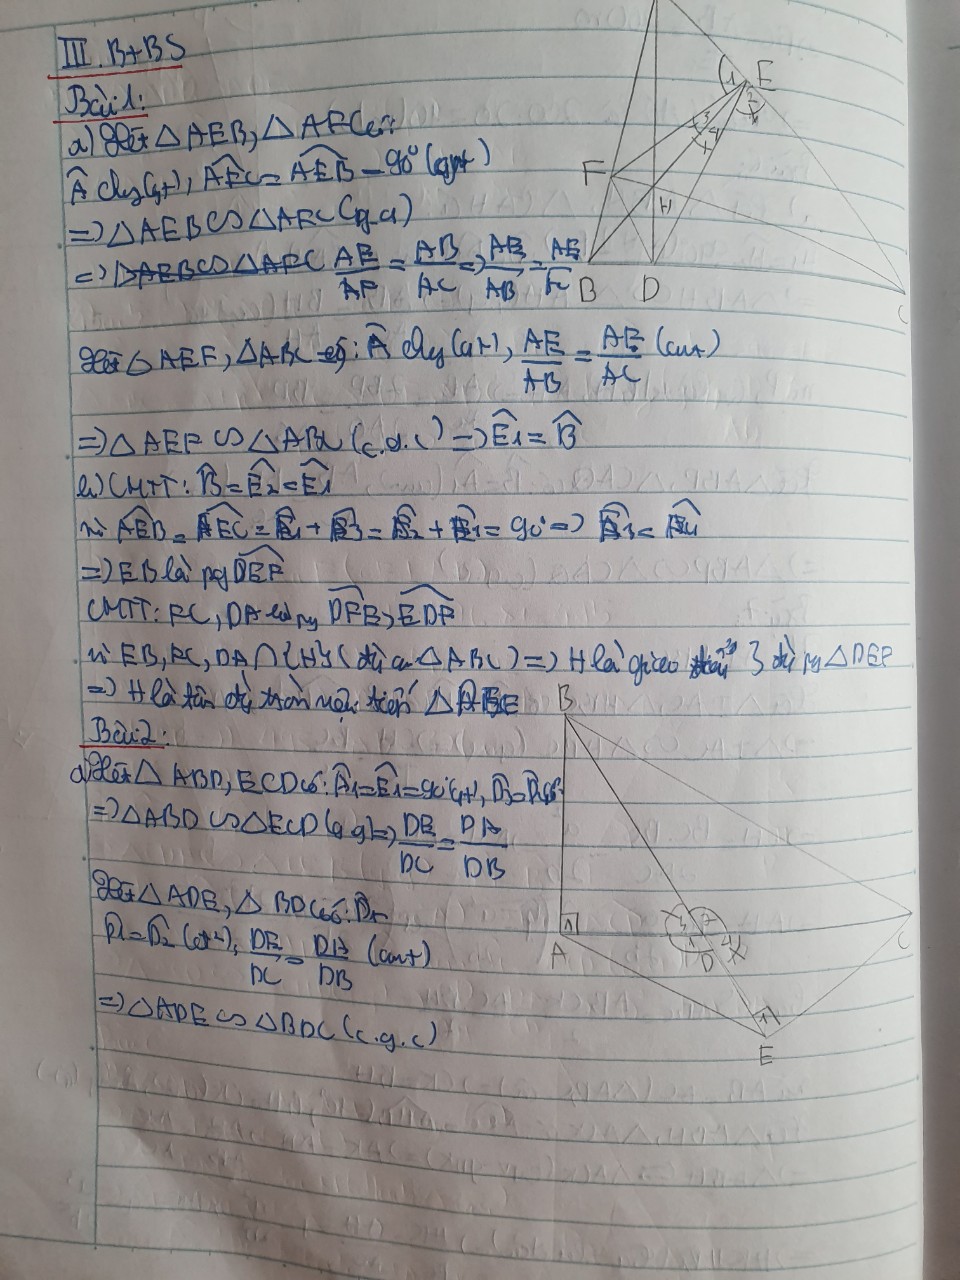 III. B+BS
Bài 1:
a) Xét △AEB, △AFC có:
Â chg (gt), AFC = AEB = 90° (gt)
=> △AEB ∽ △AFC (g.g)
=> AE/AF = AB/AC => AE/AB = AF/AC
Xét △AEF, △ABC có: Â chg (gt), AE/AB = AF/AC (cmt)
=> △AEF ∽ △ABC (c.g.c) => Ê1 = B̂
b) CMTT: B̂ = Ê2 = Ê1
vì AEB = AEC = Ê1 + Ê3 = Ê2 + Ê4 = 90° => Ê3 = Ê4
=> EB là pg DEF
CMTT: FC, DA là pg DFE, EDF
vì EB, FC, DA ∩ {H} △ABC) => H là giao 3 pg △DEF
=> H là tâm đg tròn nội tiếp △
Bài 2:
a) Xét △ABD, ECD có: Â1 = Ê1 = 90° (gt), D̂3 = D̂4
=> △ABD ∽ △ECD (g.g) => DE/DC = DA/DB
Xét △ADE, △BDC có:
D̂1 = D̂2 (đ²), DE/DC = DA/DB (cmt)
=> △ADE ∽ △BDC (c.g.c)
1 E
2
3
4
F
H
B D
C
B
1
A
3 2
1 4
D
C
1
E